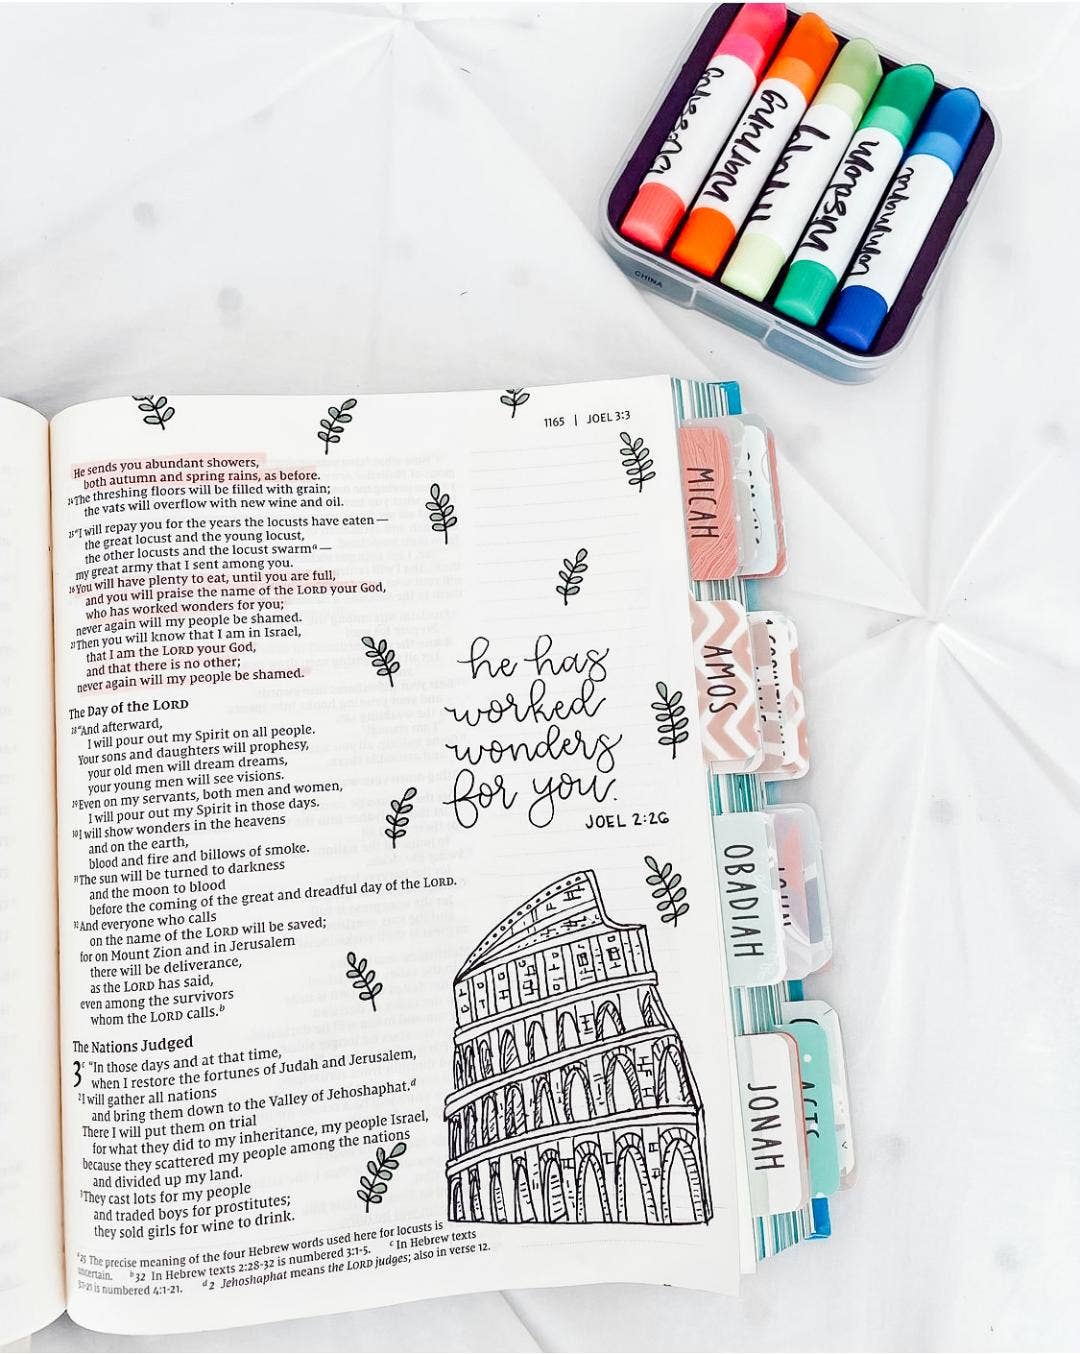 warning
wisdom
CHINA
1165 | JOEL 3:3
He sends you abundant showers,
both autumn and spring rains, as before.
24The threshing floors will be filled with grain;
the vats will overflow with new wine and oil.
25"I will repay you for the years the locusts have eaten—
the great locust and the young locust,
the other locusts and the locust swarma—
my great army that I sent among you.
26You will have plenty to eat, until you are full,
and you will praise the name of the LORD your God,
who has worked wonders for you;
never again will my people be shamed.
27Then you will know that I am in Israel,
that I am the LORD your God,
and that there is no other;
never again will my people be shamed.
The Day of the LORD
28"And afterward,
I will pour out my Spirit on all people.
Your sons and daughters will prophesy,
your old men will dream dreams,
your young men will see visions.
29Even on my servants, both men and women,
I will pour out my Spirit in those days.
30I will show wonders in the heavens
and on the earth,
blood and fire and billows of smoke.
31The sun will be turned to darkness
and the moon to blood
before the coming of the great and dreadful day of the LORD.
32And everyone who calls
on the name of the LORD will be saved;
for on Mount Zion and in Jerusalem
there will be deliverance,
as the LORD has said,
even among the survivors
whom the LORD calls.b
The Nations Judged
3c "In those days and at that time,
when I restore the fortunes of Judah and Jerusalem,
2I will gather all nations
and bring them down to the Valley of Jehoshaphat.d
There I will put them on trial
for what they did to my inheritance, my people Israel,
because they scattered my people among the nations
and divided up my land.
3They cast lots for my people
and traded boys for prostitutes;
they sold girls for wine to drink.
a25 The precise meaning of the four Hebrew words used here for locusts is
uncertain. b32 In Hebrew texts 2:28-32 is numbered 3:1-5. c In Hebrew texts
3:1-21 is numbered 4:1-21. d2 Jehoshaphat means the LORD judges; also in verse 12.
he has
worked
wonders
for you.
JOEL 2:26
MICAH
AMOS
OBADIAH
JOHN
JONAH
ACTS